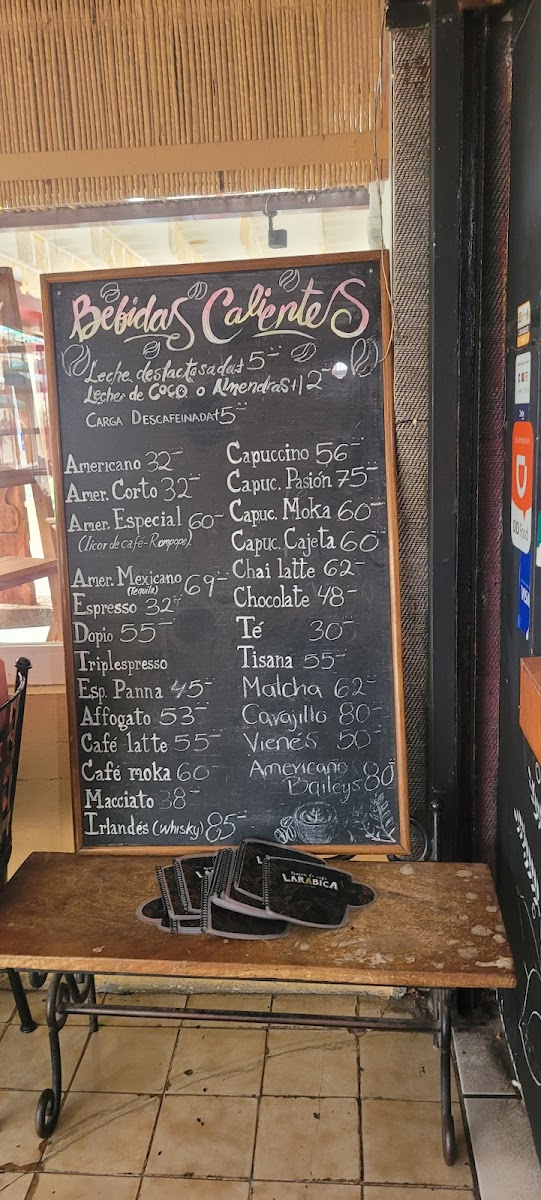 Bebidas Calientes
Leche deslactosada+5
Leches de COCO o Almendras+12
CARGA DESCAFEINADA+5
Americano 32
Amer. Corto 32
Amer. Especial 60
(licor de café-Rompope)
Amer. Mexicano 69
(Tequila)
Espresso 32
Dopio 55
Triplespresso
Esp. Panna 45
Affogato 53
Café latte 55
Café moka 60
Macciato 38
Irlandés (whisky) 85
Capuccino 56
Capuc. Pasión 75
Capuc. Moka 60
Capuc. Cajeta 60
Chai latte 62
Chocolate 48
Té 30
Tisana 55
Matcha 62
Cavajillo 80
Vienés 50
Americano
Baileys 80
LARÁBICA
DiDi Food
VISA